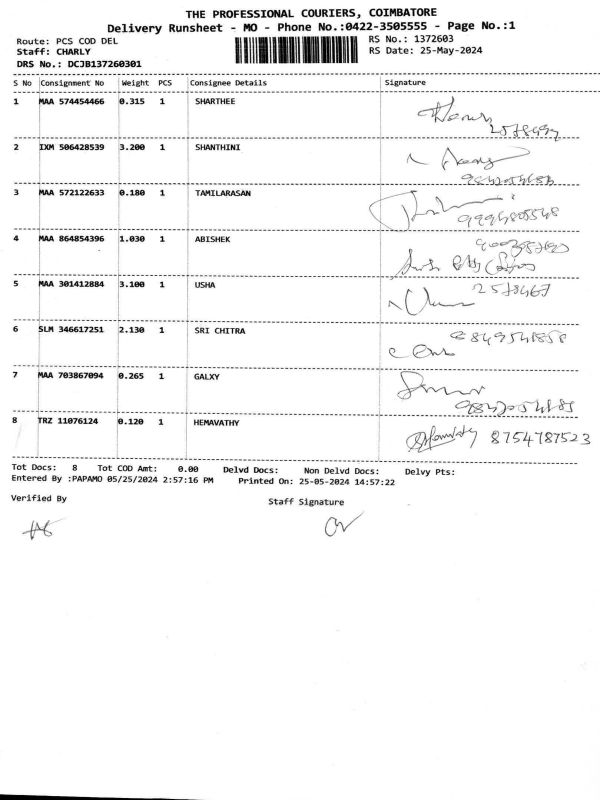 THE PROFESSIONAL COURIERS, COIMBATORE
Delivery Runsheet - MO - Phone No.:0422-3505555 - Page No.:1
Route: PCS COD DEL RS No.: 1372603
Staff: CHARLY RS Date: 25-May-2024
DRS No.: DCJB137260301
S No Consignment No Weight PCS Consignee Details Signature
1 MAA 574454466 0.315 1 SHARTHEE
2 IXM 506428539 3.200 1 SHANTHINI
3 MAA 572122633 0.180 1 TAMILARASAN
4 MAA 864854396 1.030 1 ABISHEK
5 MAA 301412884 3.100 1 USHA
2578467
6 SLM 346617251 2.130 1 SRI CHITRA
7 MAA 703867094 0.265 1 GALXY
8 TRZ 11076124 0.120 1 HEMAVATHY
8754787523
Tot Docs: 8 Tot COD Amt: 0.00 Delvd Docs: Non Delvd Docs: Delvy Pts:
Entered By :PAPAMO 05/25/2024 2:57:16 PM Printed On: 25-05-2024 14:57:22
Verified By Staff Signature